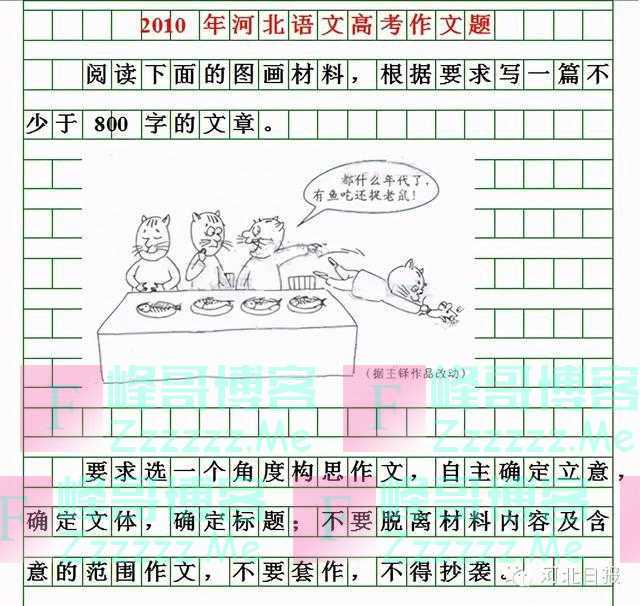 2010 年河北语文高考作文题
阅读下面的图画材料，根据要求写一篇不
少于 800 字的文章。
都什么年代了，
有鱼吃还捉老鼠！
（据王铎作品改动）
F 峰哥博客
Zzzzzz.Me
F 峰哥博客
Zzzzzz.Me
要求选一个角度构思作文，自主确定立意，
确定文体，确定标题；不要脱离材料内容及含
意的范围作文，不要套作，不得抄袭。
F 峰哥博客
Zzzzzz.Me
F 峰哥博客
Zzzzzz.Me
河北日报